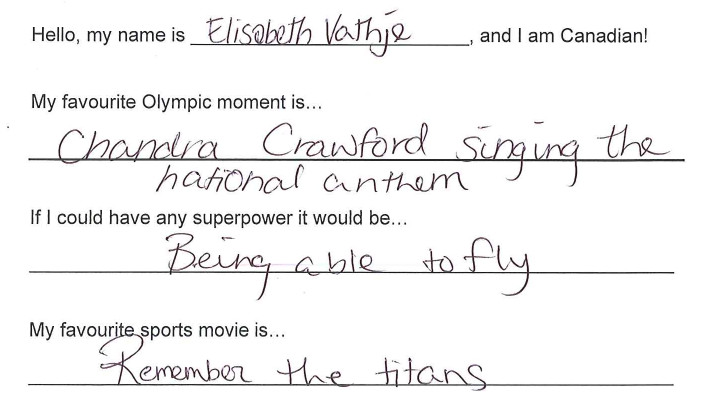 Hello, my name is Elisabeth Vathje, and I am Canadian!
My favourite Olympic moment is...
Chandra Crawford singing the
national anthem
If I could have any superpower it would be...
Being able to fly
My favourite sports movie is...
Remember the titans